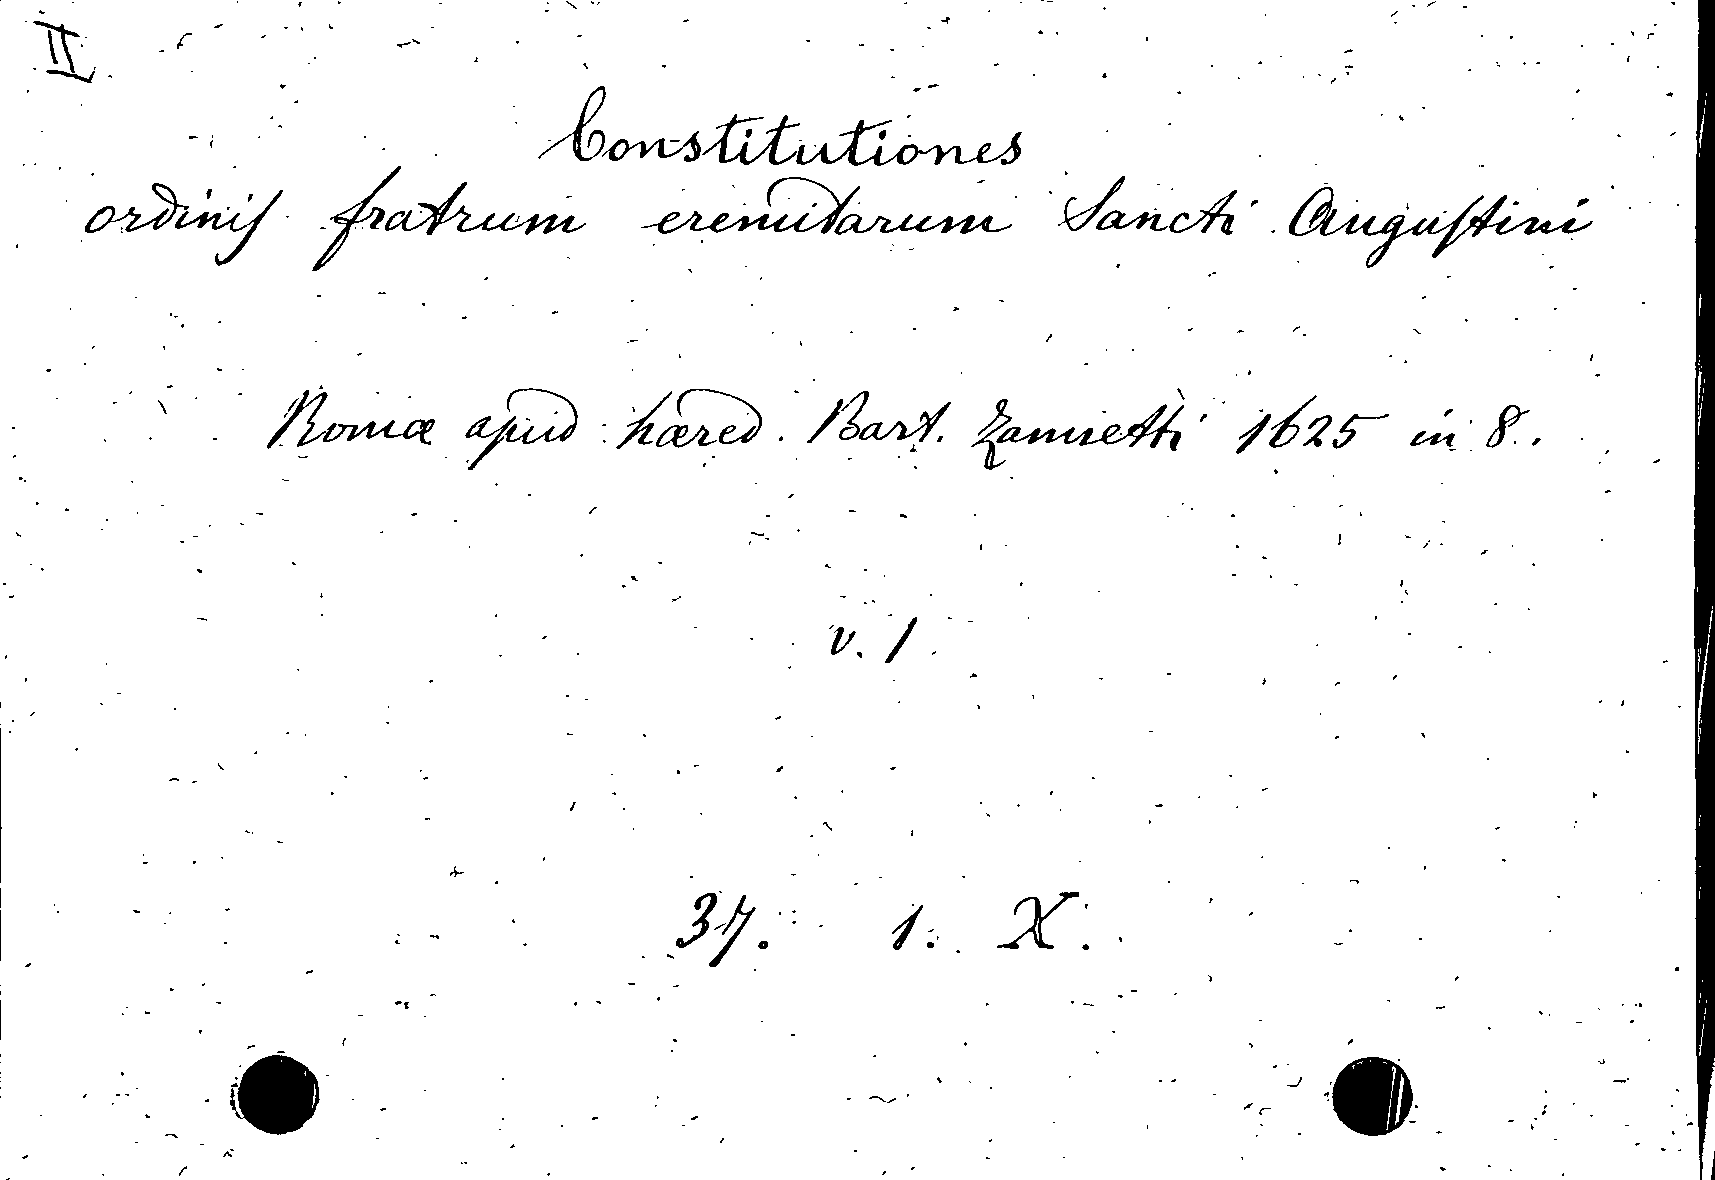 II
Constitutiones
ordinis fratrum eremitarum Sancti Augustini
Romæ apud hæred. Bart. Zannetti 1625 in 8.
v. 1
37. 1. X.